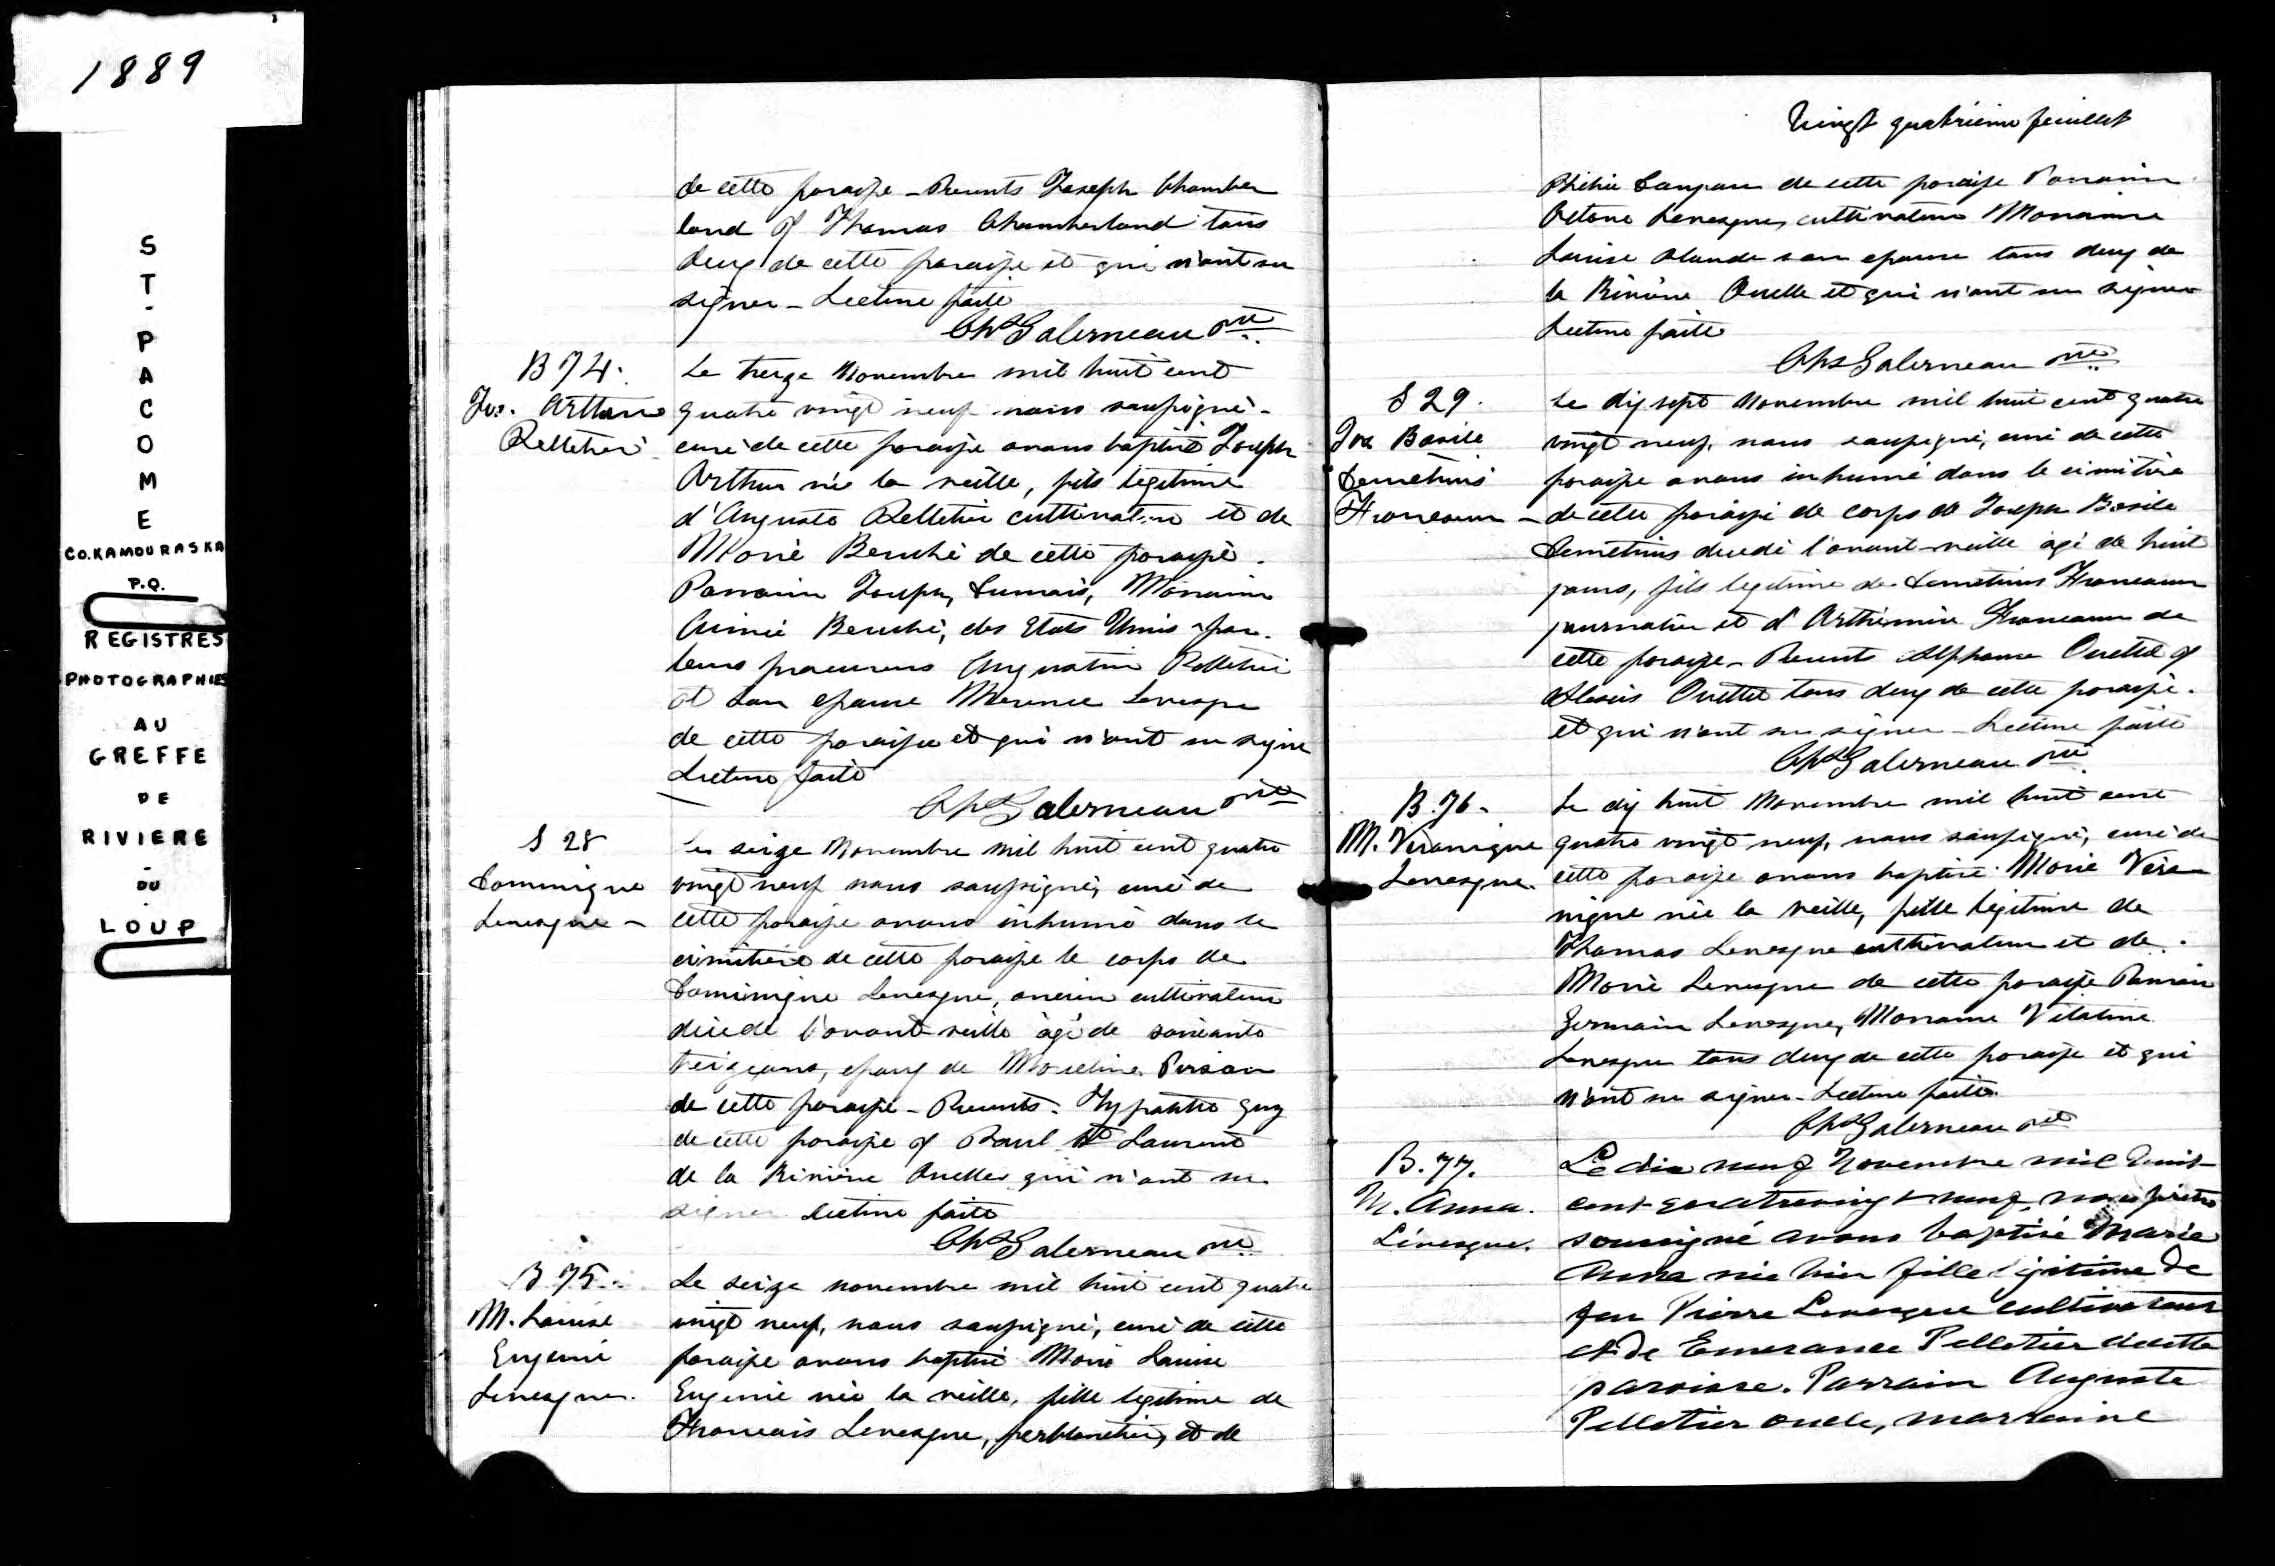 1889
ST-PACOME
CO. KAMOURASKA
P.Q.
REGISTRES
PHOTOGRAPHIES
AU
GREFFE
DE
RIVIERE
-
DU
-
LOUP
de cette paroisse - Presents Joseph Chamber
land & Thomas Chamberland tous
deux de cette paroisse et qui n'ont su
signer - Lecture faite
Chs Galerneau ptre
B 74.
Jos. Arthur
Pelletier
Le treize Novembre mil huit cent
quatre vingt neuf nous soussigné
curé de cette paroisse avons baptisé Joseph
Arthur né la veille, fils légitime
d'Auguste Pelletier cultivateur et de
Marie Berubé de cette paroisse.
Parrain Joseph Dumais, Marraine
Aimée Berubé, des Etats Unis par
leurs procureurs Augustin Pelletier
et son epouse Levesque
de cette paroisse et qui n'ont su signer
Lecture faite
Chs Galerneau ptre
S 28
Dominique
Levesque -
Le seize Novembre mil huit cent quatre
vingt neuf nous soussigné, curé de
cette paroisse avons inhumé dans le
cimitière de cette paroisse le corps de
Dominique Levesque, ancien cultivateur
décédé l'avant veille âgé de soixante
treize ans, epoux de Marceline
de cette paroisse - Presents. Hypolite Guy
de cette paroisse & Paul St Laurent
de la Rivière Ouelle qui n'ont su
signer Lecture faite
Chs Galerneau ptre
B 75.
M. Louise
Eugenie
Levesque.
Le seize novembre mil huit cent quatre
vingt neuf, nous soussigné, curé de cette
paroisse avons baptisé Marie Louise
Eugenie née la veille, fille légitime de
Francois Levesque, ferblantier, et de
Vingt quatrième feuillet
de cette paroisse Parrain
Octave Levesque, cultivateur Marraine
Louise son epouse tous deux de
la Rivière Ouelle et qui n'ont su signer
Lecture faite
Chs Galerneau ptre
S 29.
Jos Basile
Demetrius
Francoeur -
Le dix sept Novembre mil huit cent quatre
vingt neuf, nous soussigné, curé de cette
paroisse avons inhumé dans le cimitière
de cette paroisse de corps de Joseph Basile
Demetrius décédé l'avant-veille âgé de huit
jours, fils légitime de Demetrius Francoeur
journalier et d'Arthémise Francoeur de
cette paroisse - Presents Alphonse Ouellet &
Alexis Ouellet tous deux de cette paroisse.
et qui n'ont su signer - Lecture faite
Chs Galerneau ptre
B. 76.
M. Véronique
Levesque.
Le dix huit Novembre mil huit cent
quatre vingt neuf, nous soussigné, curé de
cette paroisse avons baptisé Marie Véro
nique née la veille, fille légitime de
Thomas Levesque cultivateur et de
Marie Levesque de cette paroisse Parrain
Germain Levesque, Marraine Vitaline
Levesque tous deux de cette paroisse et qui
n'ont su signer - Lecture faite
Chs Galerneau ptre
B. 77.
M. Anna.
Lévesque.
Le dix neuf Novembre mil huit-
cent-quatrevingt neuf, nous prêtre
soussigné avons baptisé Marie
Anna née hier fille légitime de
feu Pierre Levesque cultivateur
et de Emerance Pelletier de cette
paroisse. Parrain Auguste
Pelletier oncle, marraine